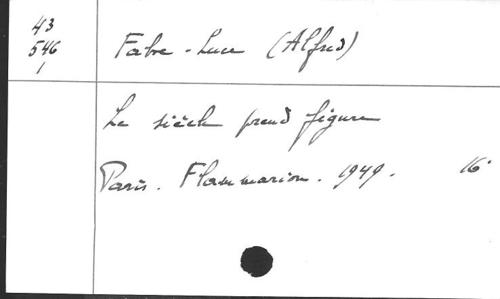 43
546
1
Fabre-Luce (Alfred)
Le siècle prend figure
Paris. Flammarion. 1949. 16°